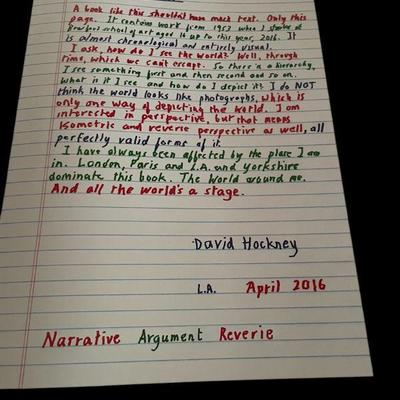 A book like this shouldnt have much text. Only this
page. It contains work from 1953 when I started at
Bradford school of art aged 16 up to this year, 2016. It
is almost chronological and entirely visual.
I ask, how do I see the world? Well, through
time, which we can't escape. So there is a hierarchy,
I see something first and then second and so on.
What is it I see and how do I depict it? I do NOT
think the world looks like photographs, which is
only one way of depicting the world. I am
interested in perspective, but that means
Isometric and reverse perspective as well, all
perfectly valid forms of it.
I have always been affected by the place I am
in. London, Paris and L.A. and Yorkshire
dominate this book. The World around me.
And all the world's a stage.
David Hockney
L.A. April 2016
Narrative Argument Reverie